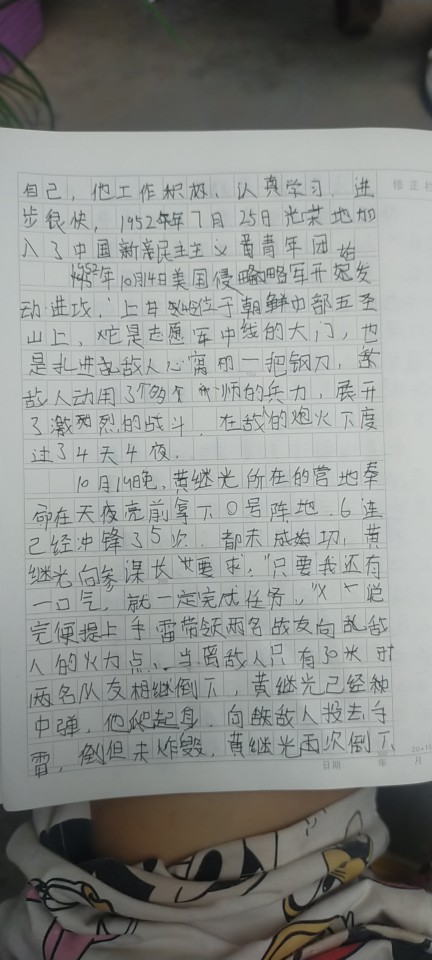 自己，他工作积极，认真学习，进
步很快，1952年年7月25日光荣地加
入了中国新民主主义青年团
1952年10月14日美国侵略军开始发
动进攻，上甘岭位于朝鲜中部五圣
山上，它是志愿军中线的大门，也
是扎进敌人心窝的一把钢刀，
敌人动用了3个多师的兵力，展开
了激烈的战斗，在敌人的炮火下度
过了4天4夜。
10月19晚，黄继光所在的营地奉
命在天夜亮前拿下0号阵地，6连
已经冲锋了5次，都未成功，黄
继光向参谋长要求："只要我还有
一口气，就一定完成任务。"说
完便提上手雷带领两名战友向敌
人的火力点，当离敌人只有30米时
两名队友相继倒下，黄继光已经种
中弹，他爬起身，向敌人投去手
雷，但未炸毁，黄继光再次倒下
修正栏
20×15
日期 年 月